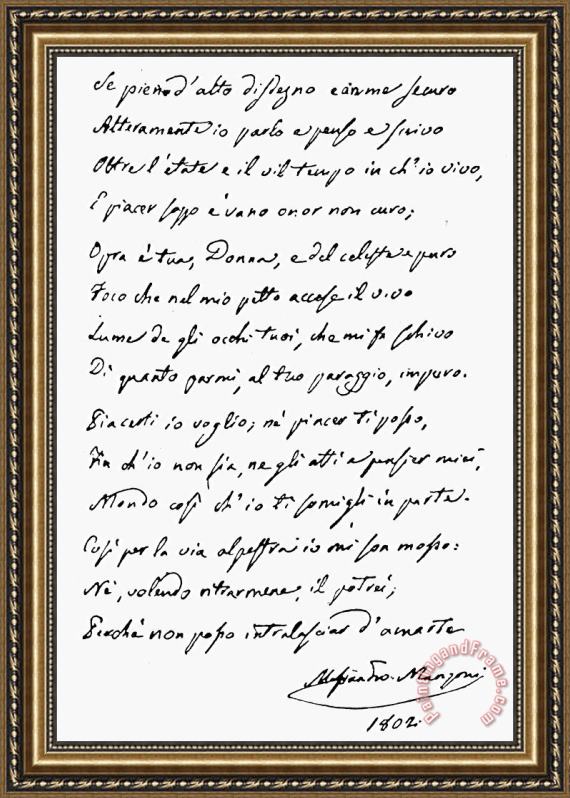 Se pien d'alto disdegno e in me securo
Alteramente io parlo e penso e scrivo
Oltre l'etate e il vil tempo in ch'io vivo,
E piacer sozzo e vano onor non curo;
Opra è tua, Donna, e del celeste e puro
Foco che nel mio petto accese il vivo
Lume de gli occhi tuoi, che mi fa schivo
Di quanto parmi, al tuo paraggio, impuro.
Piacerti io voglio; nè piacer ti posso,
Fin ch'io non sia, ne gli atti e pensier miei,
Mondo così ch'io ti somigli in parte.
Così per la via alpestra io mi son mosso:
Nè, volendo ritrarmene, il potrei;
Perchè non posso intralasciar d'amarte
Alessandro Manzoni
1802.
PaintingandFrame.com